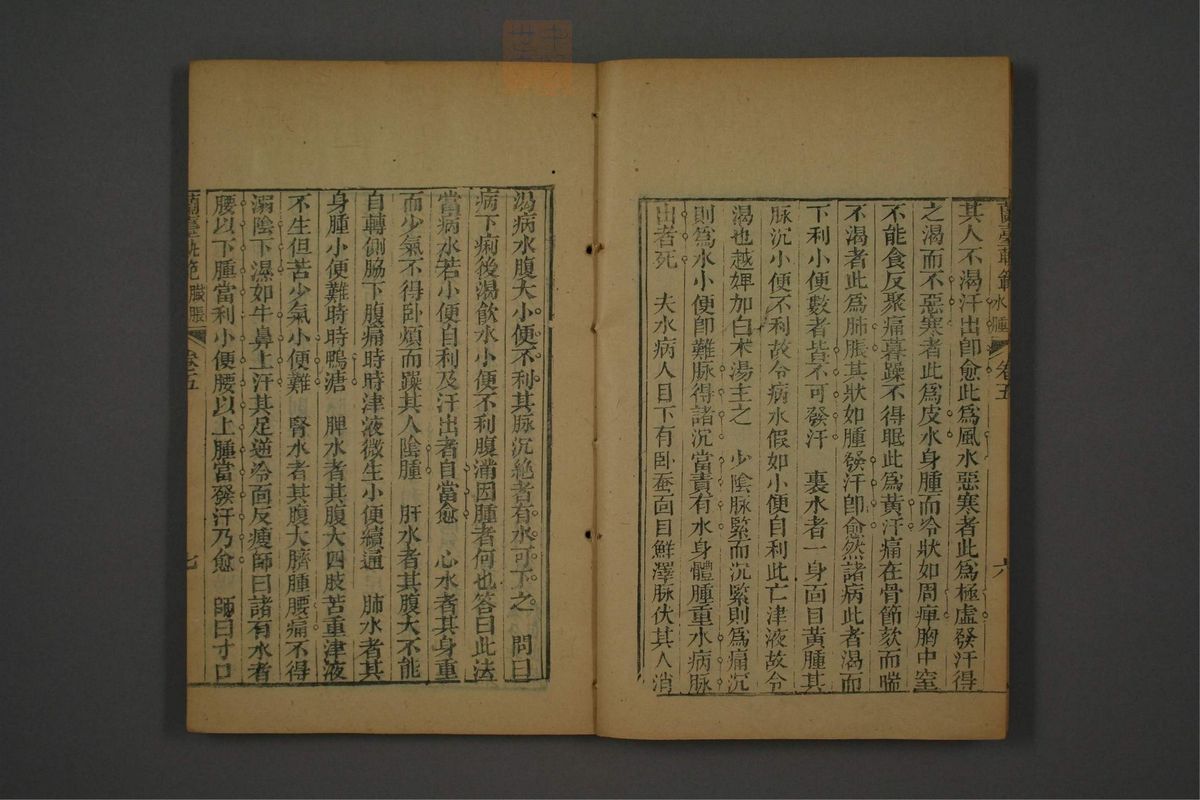 蘭臺軌範 水腫 卷五 六
其人不渴汗出卽愈此爲風水惡寒者此爲極虛發汗得
之渴而不惡寒者此爲皮水身腫而冷狀如周痺胸中窒
不能食反聚痛暮躁不得眠此爲黃汗痛在骨節欬而喘
不渴者此爲肺脹其狀如腫發汗卽愈然諸病此者渴而
下利小便數者皆不可發汗　裏水者一身面目黃腫其
脉沉小便不利故令病水假如小便自利此亡津液故令
渴也越婢加白朮湯主之　少陰脉緊而沉緊則爲痛沉
則爲水小便卽難脉得諸沉當責有水身體腫重水病脉
出者死　夫水病人目下有卧蚕面目鮮澤脉伏其人消
渴病水腹大小便不利其脉沉絶者有水可下之　問曰
病下痢後渴飲水小便不利腹滿因腫者何也答曰此法
當病水若小便自利及汗出者自當愈　心水者其身重
而少氣不得卧煩而躁其人陰腫　肝水者其腹大不能
自轉側脇下腹痛時時津液微生小便續通　肺水者其
身腫小便難時時鴨溏　脾水者其腹大四肢苦重津液
不生但苦少氣小便難　腎水者其腹大臍腫腰痛不得
溺陰下濕如牛鼻上汗其足逆冷面反瘦師曰諸有水者
腰以下腫當利小便腰以上腫當發汗乃愈　師曰寸口
蘭臺軌範 臌脹 卷五 七